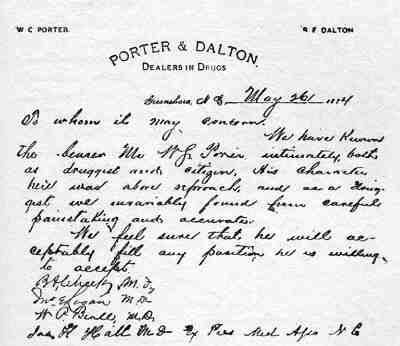 W C PORTER.
R F DALTON
PORTER & DALTON.
DEALERS IN DRUGS
Greensboro, N. C. May 26 1884
To whom it may concern.
We have known
the bearer Mr W S Porter intimately, both
as druggist and citizen, His character
here was above reproach, and as a drug-
gist we invariably found him careful
painstaking and accurate.
We feel sure that he will ac-
ceptably fill any position he is willing
to accept.
M. D,
Logan M. D.
W P Beall, M. D.
Jas K Hall M D Ex Pres Med N C